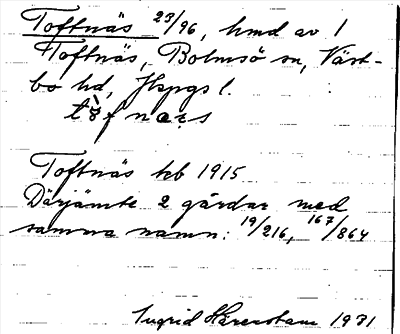 Toftnäs 23/96, hmd av 1
Toftnäs, Bolmsö sn, Väst-
bo hd, Jkpgs l.
Toftnäs kb 1915
Därjämte 2 gårdar med
samma namn: 19/216, 167/864
Ingrid Härenstam 1931